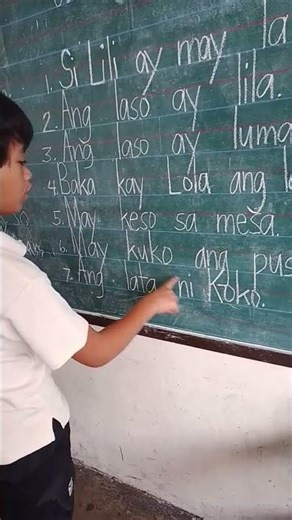 1. Si Lili ay may la
2. Ang laso ay lila.
3. Ang laso ay luma
4. Baka kay Lola ang
5. May keso sa mesa.
6. May kuko ang pus
7. Ang lata ni Koko.